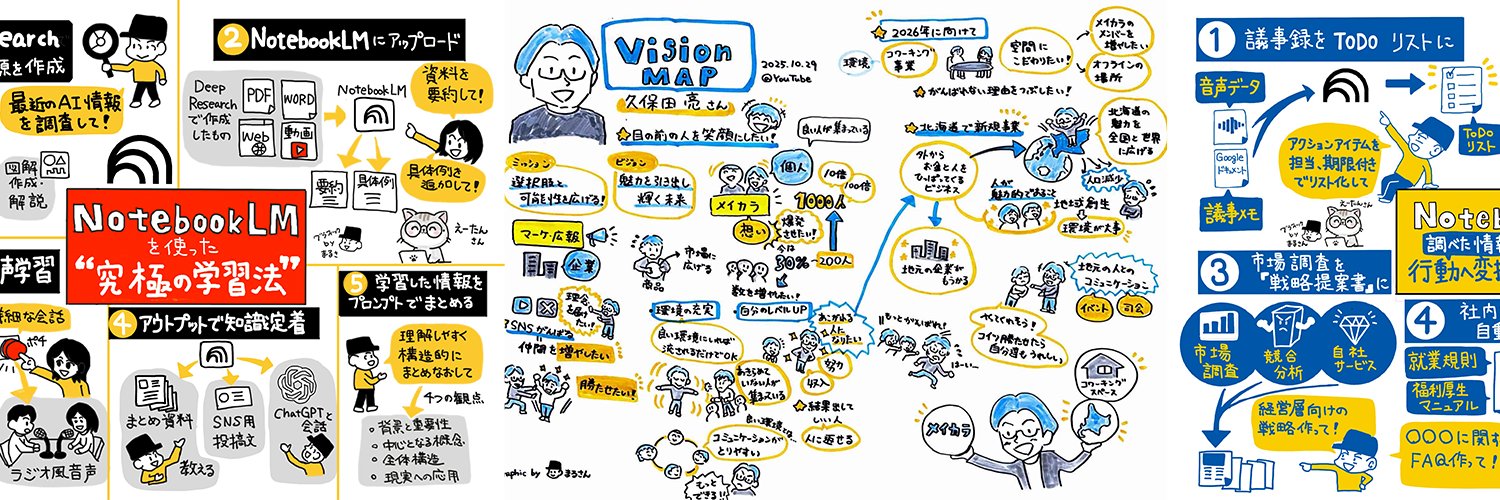 earch
源を作成
最近のAI情報
を調査して!
図解
作成・
解説
② NotebookLMにアップロード
Deep
Research
で作成
したもの
PDF
WORD
Web
動画
NotebookLM
資料を
要約して!
要約
具体例
具体例を
追加して!
NotebookLM
を使った
“究極の学習法”
by
まるさん
えーたん
さん
声学習
詳細な会話
ポチ
ラジオ風音声
④ アウトプットで知識定着
まとめ資料
SNS用
投稿文
ChatGPTと
会話
教える
⑤ 学習した情報を
プロンプトでまとめる
理解しやすく
構造的に
まとめなおして
4つの観点
・背景と重要性
・中心となる概念
・全体構造
・現実への応用
Vision
MAP
2025.10.29
@YouTube
久保田 亮さん
★目の前の人を笑顔にしたい!
ミッション
選択肢と
可能性を広げる!
ビジョン
魅力を引き出し
輝く未来
マーケ・広報
企業
商品
市場に
広げる
理念を
届けたい!
SNSがんばる
仲間を増やしたい
勝たせたい!
良い人が集まっている
個人
メイカラ
想い
10倍
100倍
1000人
爆発
させたい!
今は
30%
~200人
数を増やしたい!
・環境の充実
・自分のレベルUP
良い環境にいれば
流されるだけでOK
あきらめて
いない人が
集まっている
良い環境とは…
コミュニケーションが
とりやすい
もっと
できる!!
あこがれる
人に
なりたい
努力
収入
★結果出して
しい人
人に返せる
graphic by まるさん
★2026年に向けて
環境
コワーキング
事業
空間に
こだわりたい!
メイカラの
メンバーを
増やしたい
オフラインの
場所
★がんばれない理由をつぶしたい!
★北海道で新規事業
外から
お金と人を
ひっぱってくる
ビジネス
北海道の
魅力を
全国と世界
に広げる
人が
魅力的であること
人口減少
地域創生
環境が大事
地元の企業が
もうかる
地元の人との
コミュニケーション
イベント
司会
もっとがんばれ!
はーい…
コイツ勝たせたら
自分達もうれしい
メイカラ
コワーキング
スペース
① 議事録を ToDo リストに
音声データ
Google
ドキュメント
議事メモ
アクションアイテムを
担当、期限付き
でリスト化して
ToDo
リスト
by
まるさん
えーたんさん
Noteb
調べた情報
行動へ変換
③ 市場調査を
『戦略提案書』に
市場
調査
競合
分析
自社
サービス
経営層向けの
戦略作って!
④ 社内
自動
就業規則
福利厚生
マニュアル
〇〇〇に関す
FAQ作って!